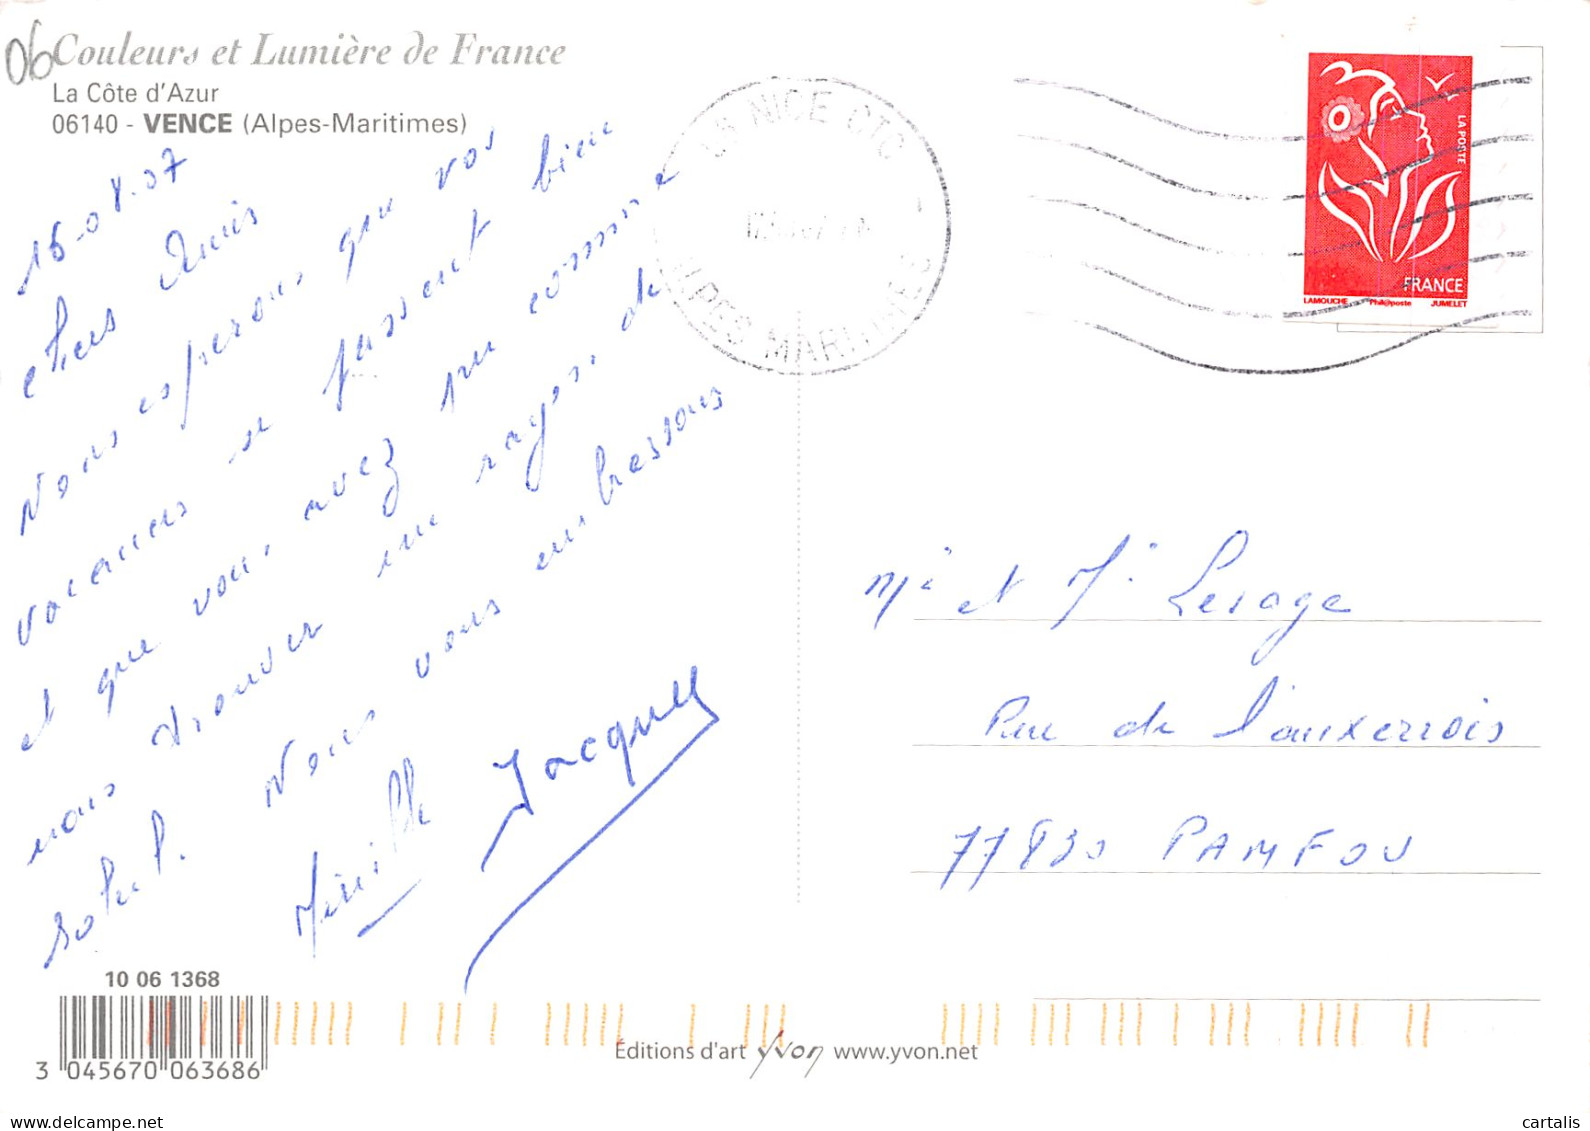 06
Couleurs et Lumière de France
La Côte d'Azur
06140 - VENCE (Alpes-Maritimes)
16-08-07
Chers Amis
Nous espérons que vos
vacances se passent bien
et que vous avez pu comme
nous trouver un rayon de
soleil. Nous vous embrassons
Mireille Jacques
NICE CTC
ALPES MARITIMES
LA POSTE
FRANCE
LAMOUCHE Phil@poste JUMELET
Mr et Mme Lesage
Rue de l'auxerrois
77830 PAMFOU
10 06 1368
3 045670 063686
Editions d'art yvon www.yvon.net
delcampe.net
cartalis